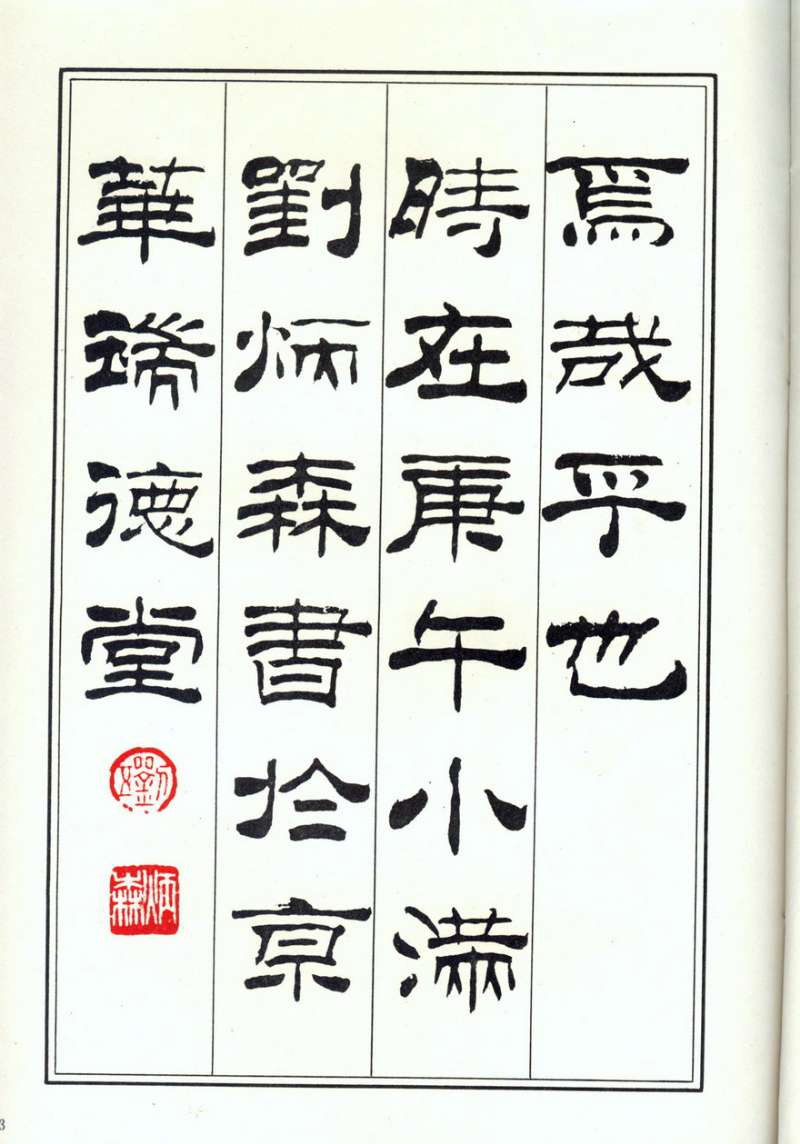 焉哉乎也
時在庚午小滿
劉炳森書於京
華瑞德堂
劉
炳森
3